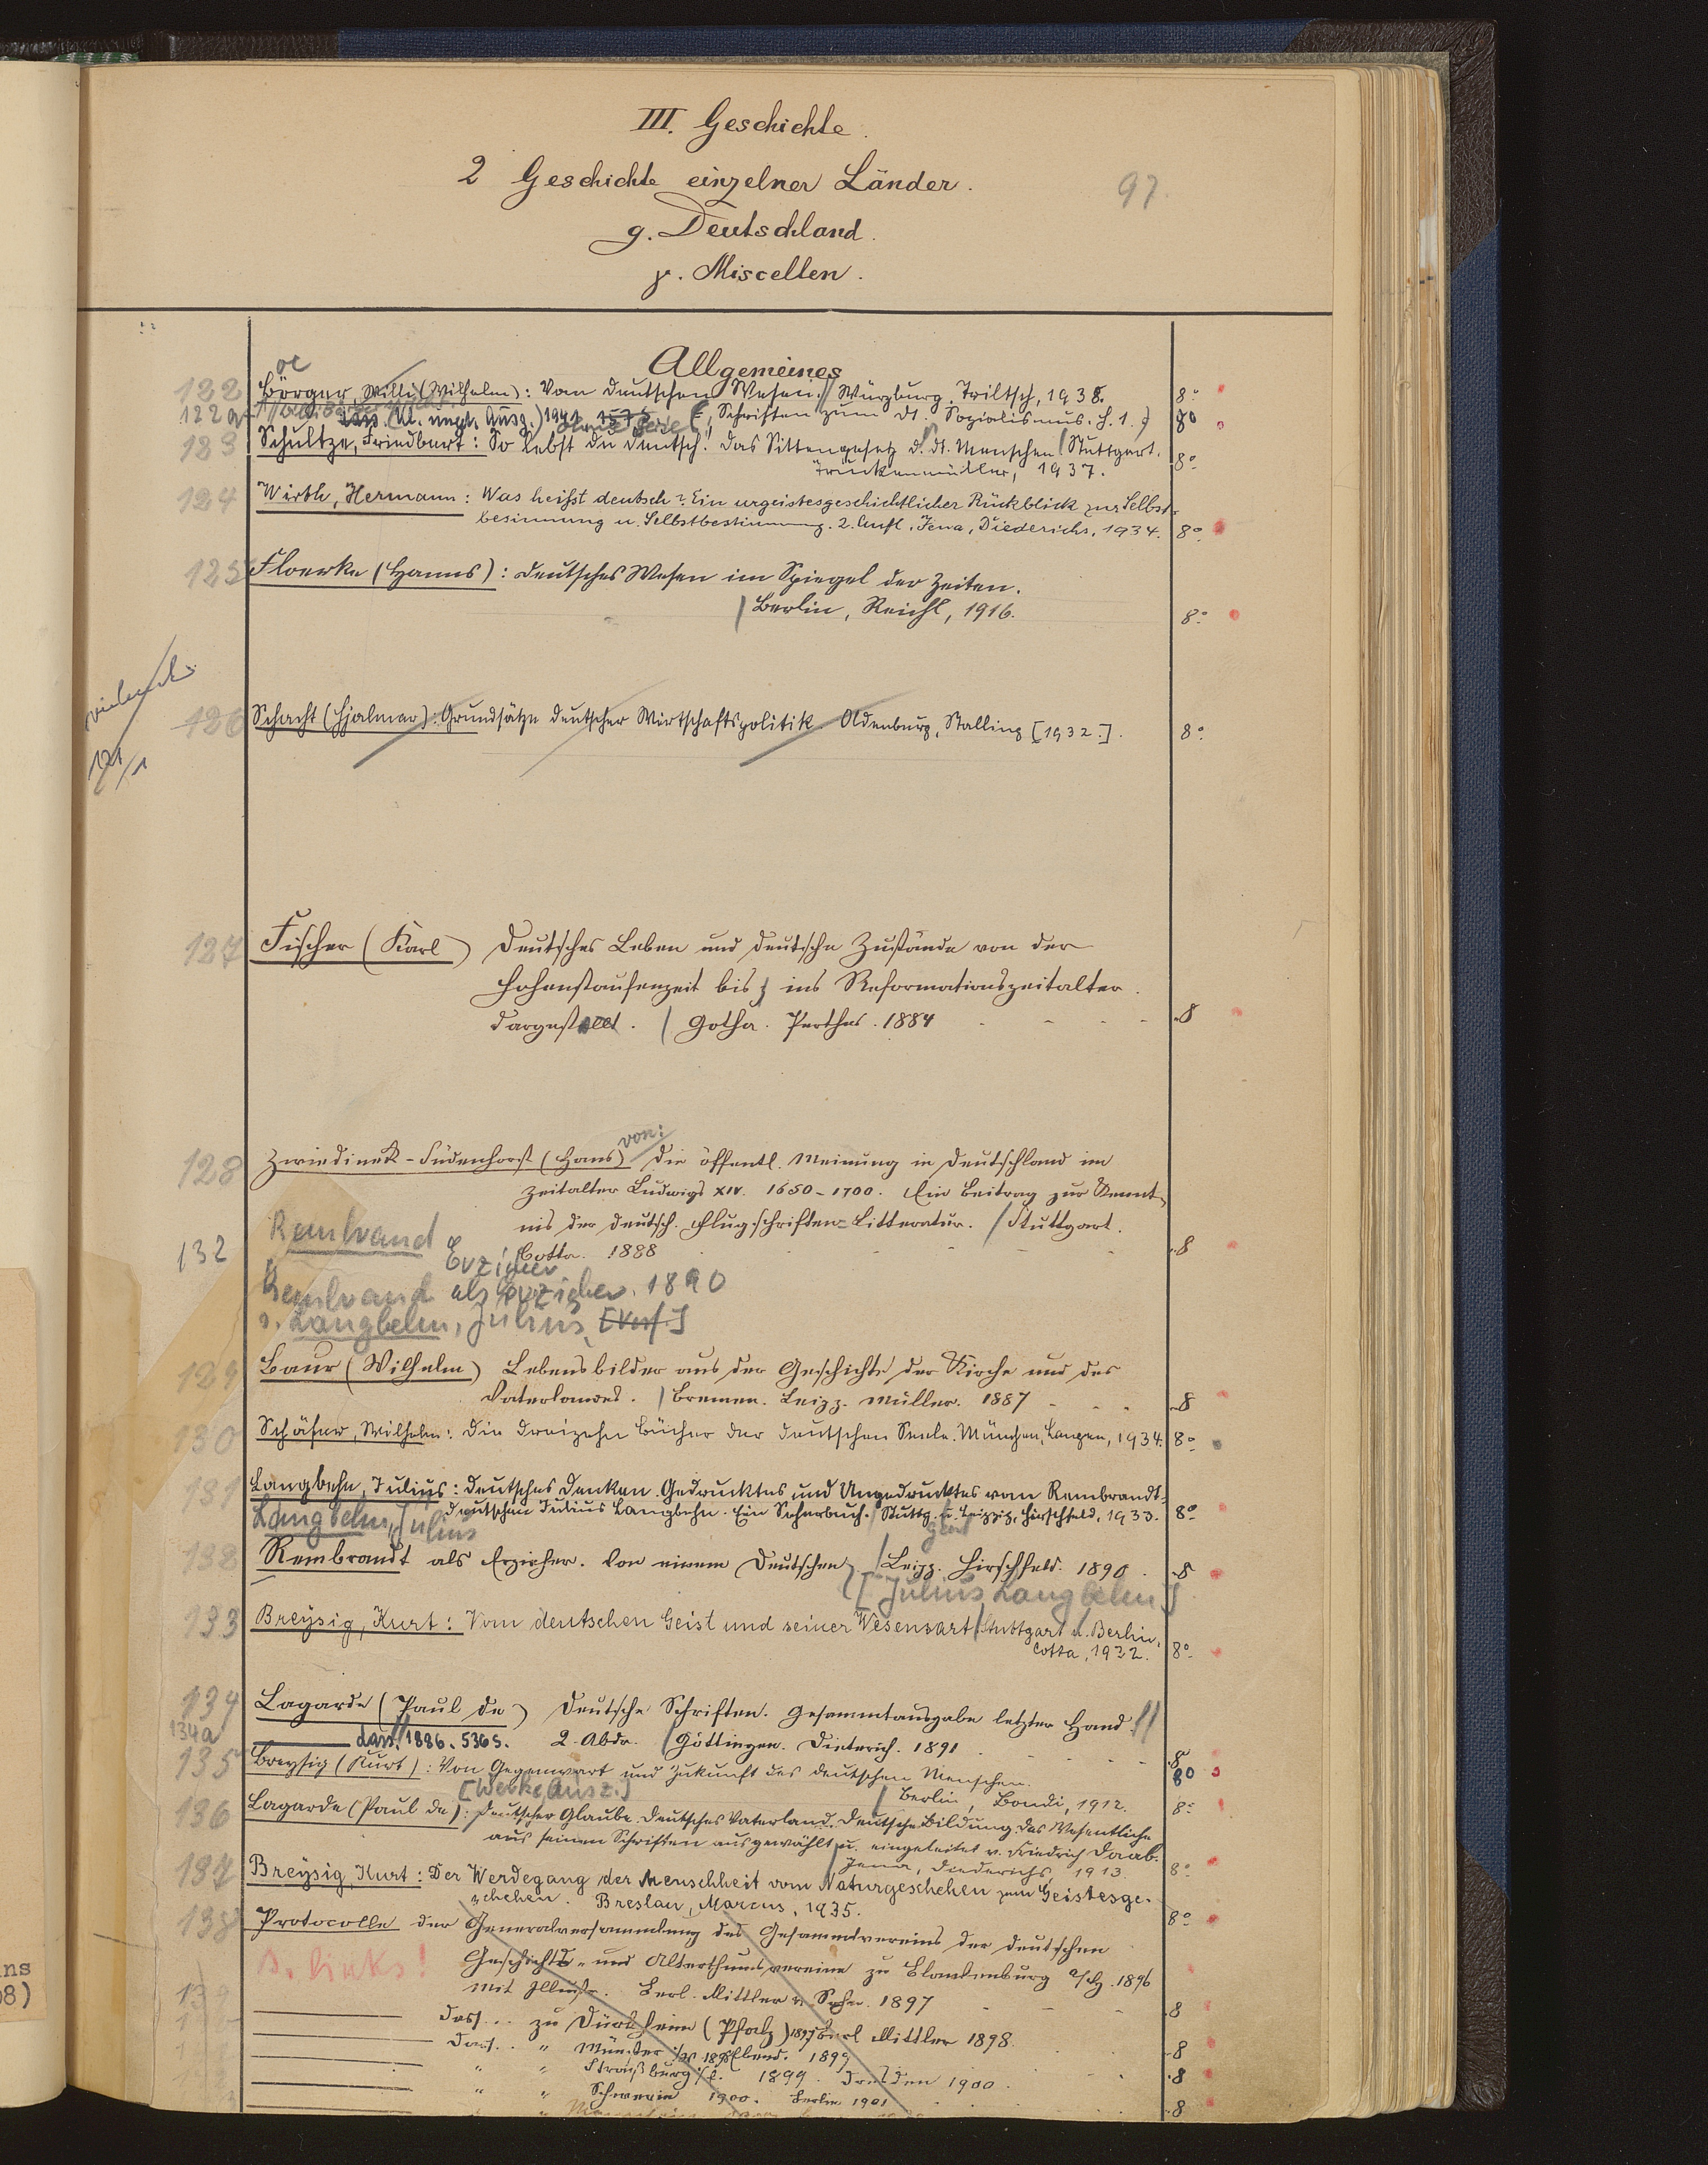 III. Geschichte.
2 Geschichte einzelner Länder.
97.
g. Deutschland.
γ. Miscellen.
Allgemeines
oe
122 Börger, Willi (Wilhelm): Vom deutschen Wesen. // Würzburg, Triltsch, 1938. 8°
122a dass. (Kl. ungek. Ausg.) 1941 ohne Serie (Schriften zum dt. Sozialismus. H. 1.) 80
123 Schultze, Friedbert: So lebst du deutsch! Das Sittengesetz d. dt. Menschen / Stuttgart,
Truckenmüller, 1937. 8°
124 Wirth, Hermann: Was heißt deutsch? Ein urgeistesgeschichtlicher Rückblick zur Selbst-
besinnung u. Selbstbestimmung. 2. Aufl. Jena, Diederichs, 1934. 8°
125 Floerke (Hanns): Deutsches Wesen im Spiegel der Zeiten.
/ Berlin, Reichl, 1916. 8°
126 Schacht (Hjalmar): Grundsätze deutscher Wirtschaftspolitik. Oldenburg, Stalling [1932.]. 8°
127 Fischer (Karl) Deutsches Leben und deutsche Zustände von der
Hohenstaufenzeit bis ins Reformationszeitalter.
dargestellt. / Gotha. Perthes. 1884 8
von:
128 Zwiedinek-Südenhorst (Hans) Die öffentl. Meinung in Deutschland im
Zeitalter Ludwigs XIV. 1650-1700. Ein Beitrag zur Kennt-
nis der deutsch. Flugschriften-Litteratur. / Stuttgart.
Cotta. 1888 8
Rembrand
132 Erzieher
Rembrand als Erzieher. 1890
s. Langbehn, Julius [Verf.]
129 Baur (Wilhelm) Lebensbilder aus der Geschichte der Kirche und des
Vaterlandes. / Bremen. Leipz. Müller. 1887 8
130 Schäfer, Wilhelm: Die dreizehn Bücher der deutschen Seele. München, Langen, 1934. 8°
131 Langbehn, Julius: Deutsches Denken. Gedrucktes und Ungedrucktes vom Rembrandt-
deutschen Julius Langbehn. Ein Seherbuch. / Stuttg. u. Leipzig, Hirschfeld, 1933. 8°
Langbehn, Julius
132 Rembrandt als Erzieher. Von einem Deutschen / Leipz. Hirschfeld. 1890. 8
[Julius Langbehn]
133 Breysig, Kurt: Vom deutschen Geist und seiner Wesensart / Stuttgart u. Berlin,
Cotta, 1932. 8°
134 Lagarde (Paul de) Deutsche Schriften. Gesammtausgabe letzter Hand. //
134a dass. // 1886. 536 S. 2. Abdr. / Göttingen. Dieterich. 1891 8
135 Breysig (Kurt): Von Gegenwart und Zukunft des deutschen Menschen. 80
[Werke, Ausz.] / Berlin, Bondi, 1912. 8°
136 Lagarde (Paul de): Deutscher Glaube. Deutsches Vaterland. Deutsche Bildung. Das Wesentliche
aus seinen Schriften ausgewählt u. eingeleitet v. Friedrich Daab.
/ Jena, Diederichs, 1913. 8°
137 Breysig, Kurt: Der Werdegang der Menschheit vom Naturgeschehen zum Geistesge-
schehen. Breslau, Marcus, 1935. 8°
138 Protocolle der Generalversammlung des Gesammtvereins der deutschen
s. links! Geschichts- und Alterthumsvereine zu Blankenburg a/Hz. 1896
139 Mit Illustr. Berl. Mittler u. Sohn. 1897 8
Dass. .. zu Dürkheim (Pfalz) 1897 Berl Mittler 1898. 8
Dass. .. " Münster i/W 1898 Ebend. 1899 8
" " Straßburg i/E. 1899. Dresden 1900.
" " Schwerin 1900. Berlin 1901 8
ns
08)